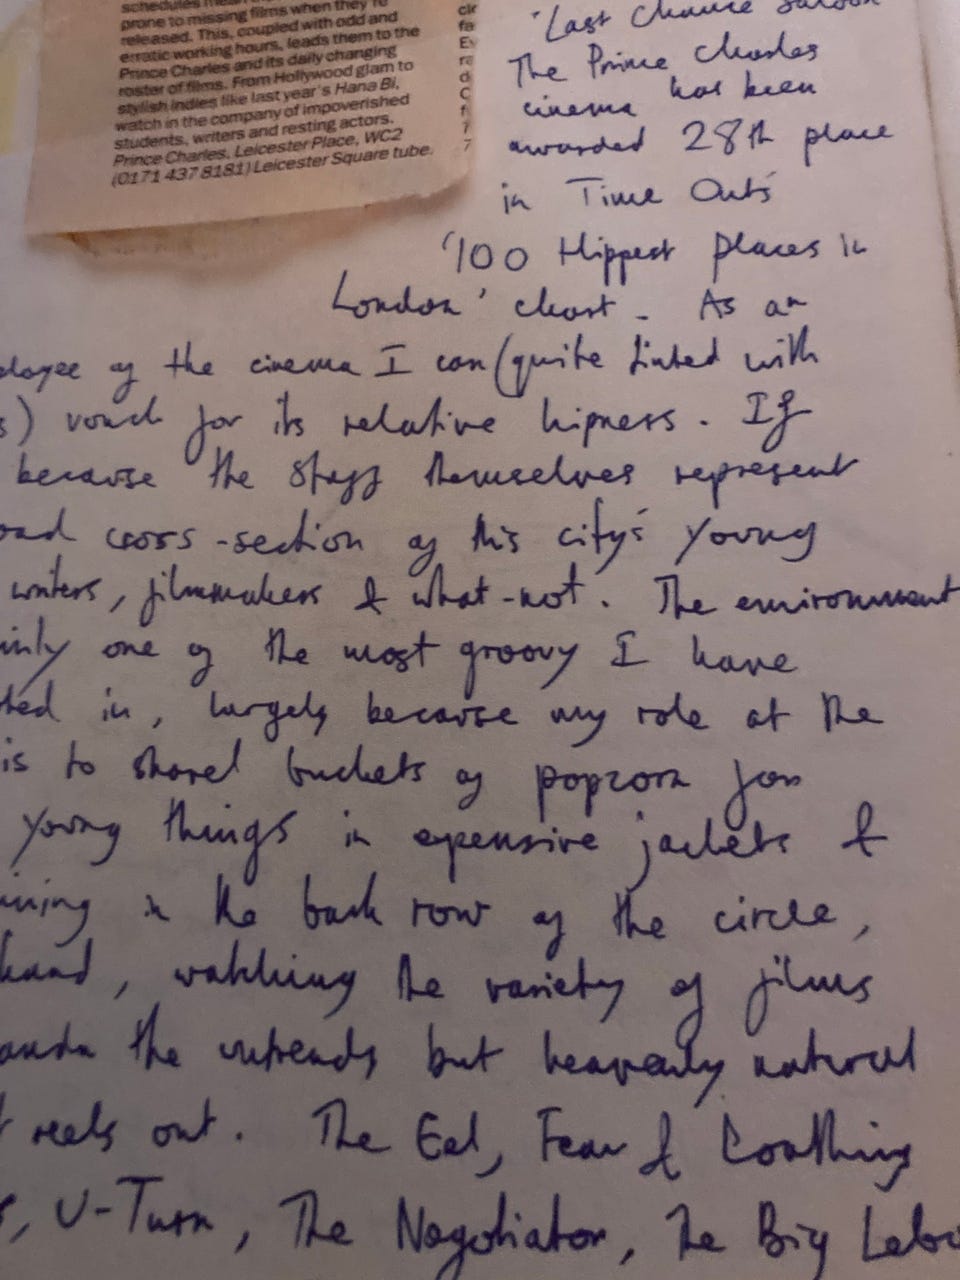 schedules mean
prone to missing films when they're
released. This, coupled with odd and
erratic working hours, leads them to the
Prince Charles and its daily changing
roster of films. From Hollywood glam to
stylish indies like last year's Hana Bi,
watch in the company of impoverished
students, writers and resting actors.
Prince Charles, Leicester Place, WC2
(0171 437 8181) Leicester Square tube.
'Last Chance Saloon'
The Prince Charles
cinema has been
awarded 28th place
in Time Out's
'100 Hippest places in
London' chart. As an
of the cinema I can (quite tinted with
) vouch for its relative hipness. If
because the staff themselves represent
cross-section of this city's young
writers, filmmakers & what-not. The environment
one of the most groovy I have
in, largely because my role at the
is to shovel buckets of popcorn for
young things in expensive jackets &
in the back row of the circle,
hand, watching the variety of films
the but heavenly natural
reels out. The Eel, Fear & Loathing
, U-Turn, The Negotiator, The Big Lebo